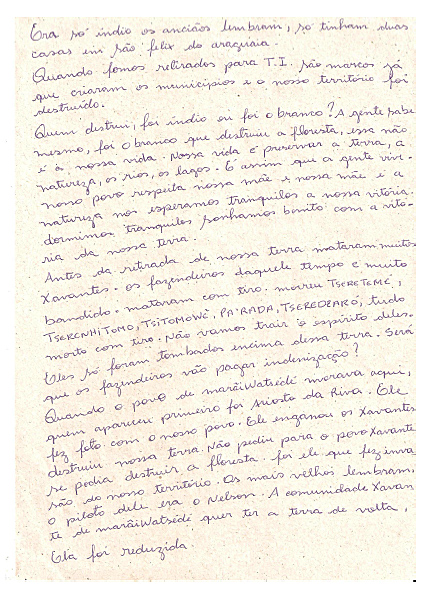 Era só índio os anciãos lembram, só tinham duas
casas em são felix do araguaia.
Quando fomos retirados para T.I. são marcos já
que criaram os municípios e o nosso território foi
destruído.
Quem destrui, foi índio ou foi o branco? A gente sabe
mesmo, foi o branco que destruiu a floresta, essa não
é a nossa vida. Nossa vida é preservar a terra, a
natureza, os rios, os lagos. É assim que a gente vive.
nosso povo respeita nossa mãe e nossa mãe é a
natureza nos esperamos tranquilos a nossa vitória.
dormimos tranquilos sonhamos bonito com a vitó-
ria da nossa terra.
Antes da retirada de nossa terra mataram muitos
Xavantes. os fazendeiros daquele tempo e muito
bandido. mataram com tiro. morreu TSERETEMÉ,
TSERENHITOMO, TSITOMOWÊ, PA'RADA, TSEREDZARÓ, tudo
morto com tiro. Não vamos trair o espírito deles.
Eles só foram tombados encima dessa terra. Será
que os fazendeiros vão pagar indenização?
Quando o povo de marãiWatsédé morava aqui,
quem apareceu primeiro foi Ariosto da Riva. Ele
fez foto com o nosso povo. Ele enganou os Xavantes
destruiu nossa terra. Não pediu para o povo Xavante
se podia destruir a floresta. foi ele que fez inva
são do nosso território. Os mais velhos lembram,
o piloto dele era o Nelson. A comunidade Xavan
te de marãiWatsédé quer ter a terra de volta,
Ela foi reduzida.